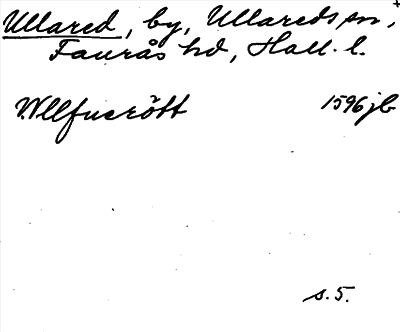 Ullared, by, Ullareds sn,
Faurås hd, Hall. l.
Wllfuerött 1596 jb
s. 5.